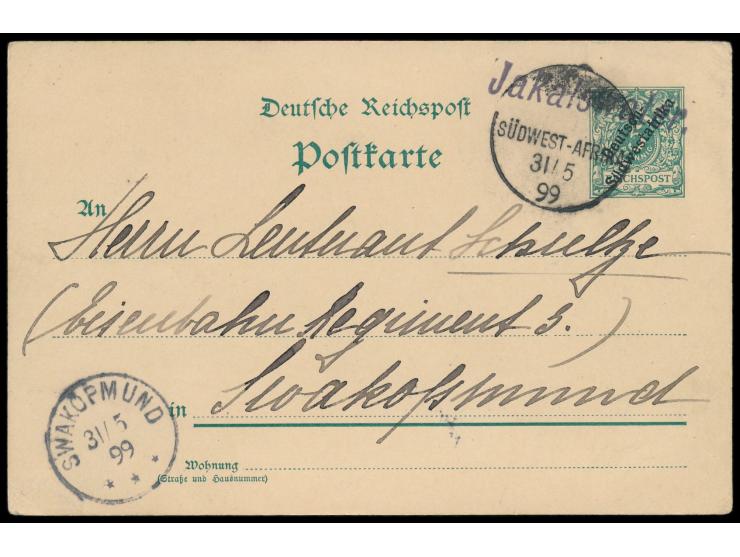 Deutsche Reichspost
Postkarte
SÜDWEST-AFRI
31/5
99
Deutsch-
Südwestafrika
REICHSPOST
An
Herrn Leutnant Schultze
(Eisenbahn Regiment 3.)
in Swakopmund
SWAKOPMUND
31/5
99
* * *
Wohnung
(Straße und Hausnummer)